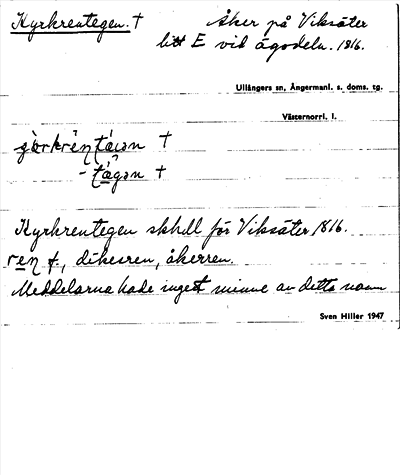 Kyrkrentegen. † Åker på Viksäter
litt E vid ägodeln. 1816.
Ullångers sn, Ångermanl. s. doms. tg.
Västernorrl. l.
†
†
Kyrkrentegen skhdl för Viksäter 1816.
ren f., dikesren, åkerren.
Meddelarna hade inget minne av detta namn
Sven Hiller 1947